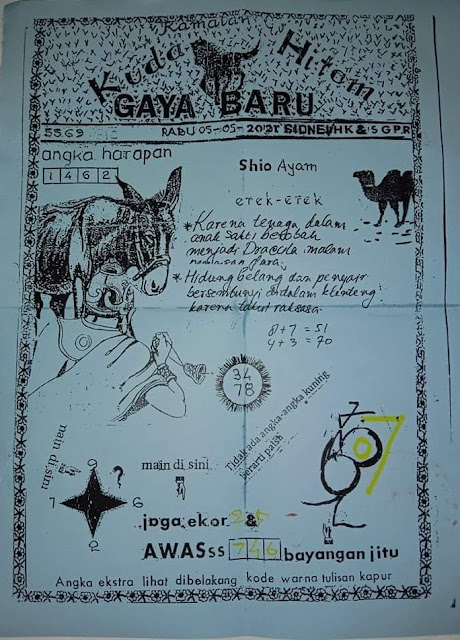 Ramalan
Kuda Hitam
GAYA BARU
5569
RABU 05-05-2021 SIDNEY HK & S G P R
angka harapan
1462
Shio Ayam
erek-erek
*Karena tenaga dalam
anak sakti berobah
menjadi Dracula malam
dara.
*Hidung belang dan penyair
bersembunyi didalam klenteng
karena takut raksasa.
8+7 = 51
4+3 = 70
34
78
Tidak ada angka-angka kuning
berarti palsu
main di sini
main di sini
?
7
6
2
07
joga ekor 2 & 5
AWASss 746 bayangan jitu
Angka ekstra lihat dibelakang kode warna tulisan kapur